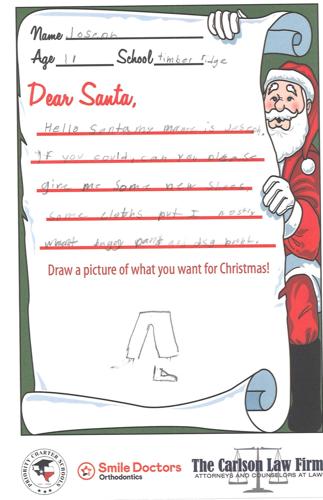 Name Joseph
Age 11 School timber ridge
Dear Santa,
Hello Santa my name is Joseph,
If you could, can you please
give me some new shoes
some cloths but I mostly
baggy
Draw a picture of what you want for Christmas!
PRIORITY CHARTER SCHOOLS
Smile Doctors
Orthodontics
The Carlson Law Firm
ATTORNEYS AND COUNSELORS AT LAW